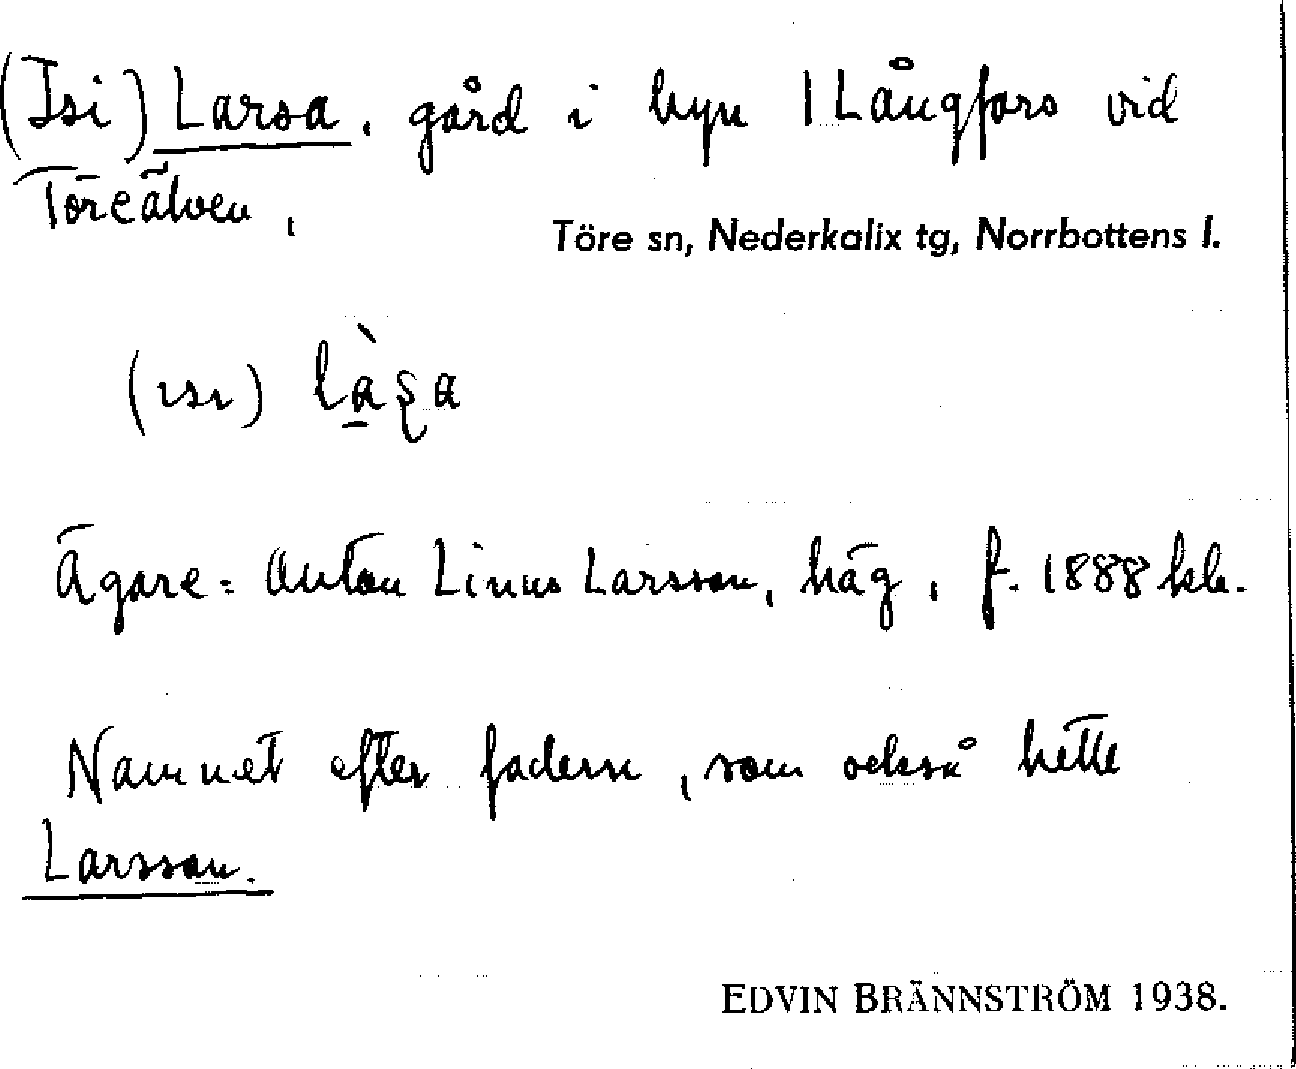 (Isi) Larsa, gård i byn 1 Långfors vid
Töreälven,
Töre sn, Nederkalix tg, Norrbottens l.
(ısı) là̱ʂa
Ägare: Anton Linus Larsson, häg, f. 1888 hle.
Namnet efter fadern, som också hette
Larsson.
EDVIN BRÄNNSTRÖM 1938.